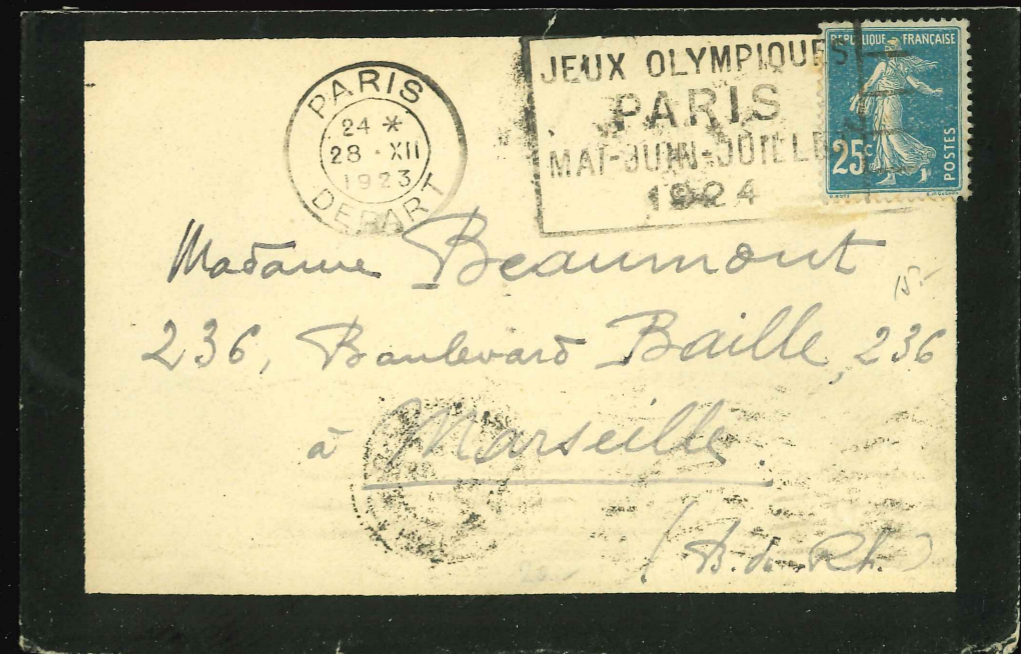 PARIS
24 *
28 · XII
1923
DEPART
JEUX OLYMPIQUES
PARIS
MAI-JUIN-JUILLET
1924
REPUBLIQUE FRANÇAISE
25c
POSTES
Madame Beaumont
236, Boulevard Baille, 236
à Marseille.
(B. du Rh.)